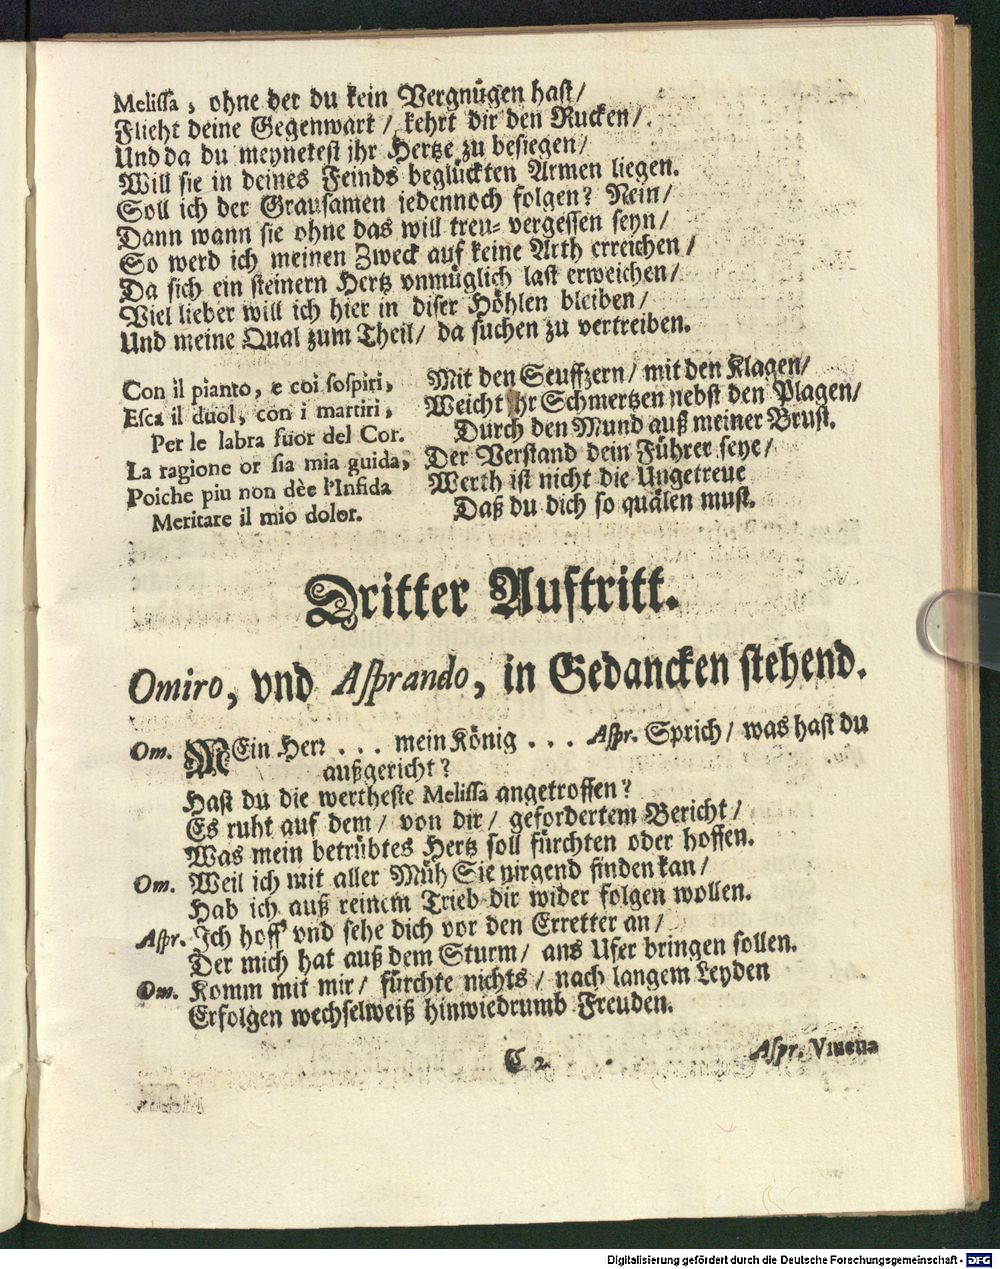 Melissa, ohne der du kein Vergnügen hast/
Flieht deine Gegenwart/ kehrt dir den Rucken/
Und da du meynetest jhr Hertze zu besiegen/
Will sie in deines Feinds beglückten Armen liegen.
Soll ich der Grausamen jedennoch folgen? Nein/
Dann wann sie ohne das will treu-vergessen seyn/
So werd ich meinen Zweck auf keine Arth erreichen/
Da sich ein steinern Hertz vnmüglich last erweichen/
Viel lieber will ich hier in diser Höhlen bleiben/
Und meine Qual zum Theil/ da suchen zu vertreiben.
Con il pianto, e coi sospiri,
Esca il duol, con i martiri,
Per le labra fuor del Cor.
La ragione or sia mia guida,
Poiche piu non dèe l'Infida
Meritare il mio dolor.
Mit den Seuffzern/ mit den Klagen/
Weicht jhr Schmertzen nebst den Plagen/
Durch den Mund auß meiner Brust.
Der Verstand dein Führer seye/
Werth ist nicht die Ungetreue
Daß du dich so quälen must.
Dritter Auftritt.
Omiro, vnd Asprando, in Gedancken stehend.
Om. MEin Herr ... mein König ... Aspr. Sprich/ was hast du
außgericht?
Hast du die wertheste Melissa angetroffen?
Es ruht auf dem/ von dir/ gefordertem Bericht/
Was mein betrübtes Hertz soll fürchten oder hoffen.
Om. Weil ich mit aller Müh Sie nirgend finden kan/
Hab ich auß reinem Trieb dir wider folgen wollen.
Aspr. Ich hoff vnd sehe dich vor den Erretter an/
Der mich hat auß dem Sturm/ ans Ufer bringen sollen.
Om. Komm mit mir/ fürchte nichts/ nach langem Leyden
Erfolgen wechselweiß hinwiedrumb Freuden.
C 2
Aspr.
Digitalisierung gefördert durch die Deutsche Forschungsgemeinschaft - DFG